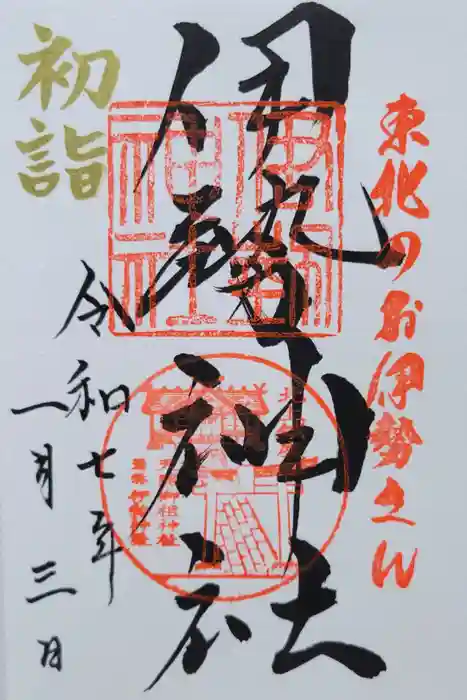 東北のお伊勢さん
伊勢神社
初詣
令和七年
一月三日